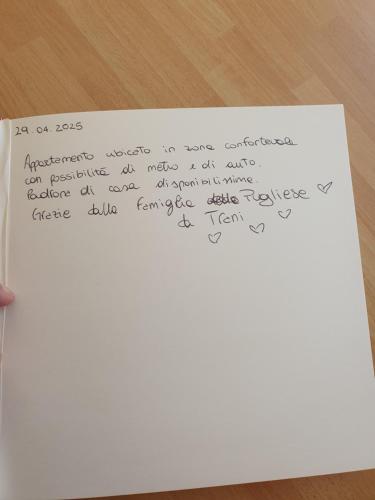 29.04.2025
Appartamento ubicato in zona confortevole
con possibilità di metro e di auto.
Padrone di casa disponibilissime.
Grazie dalla Famiglia Pugliese
da Trani